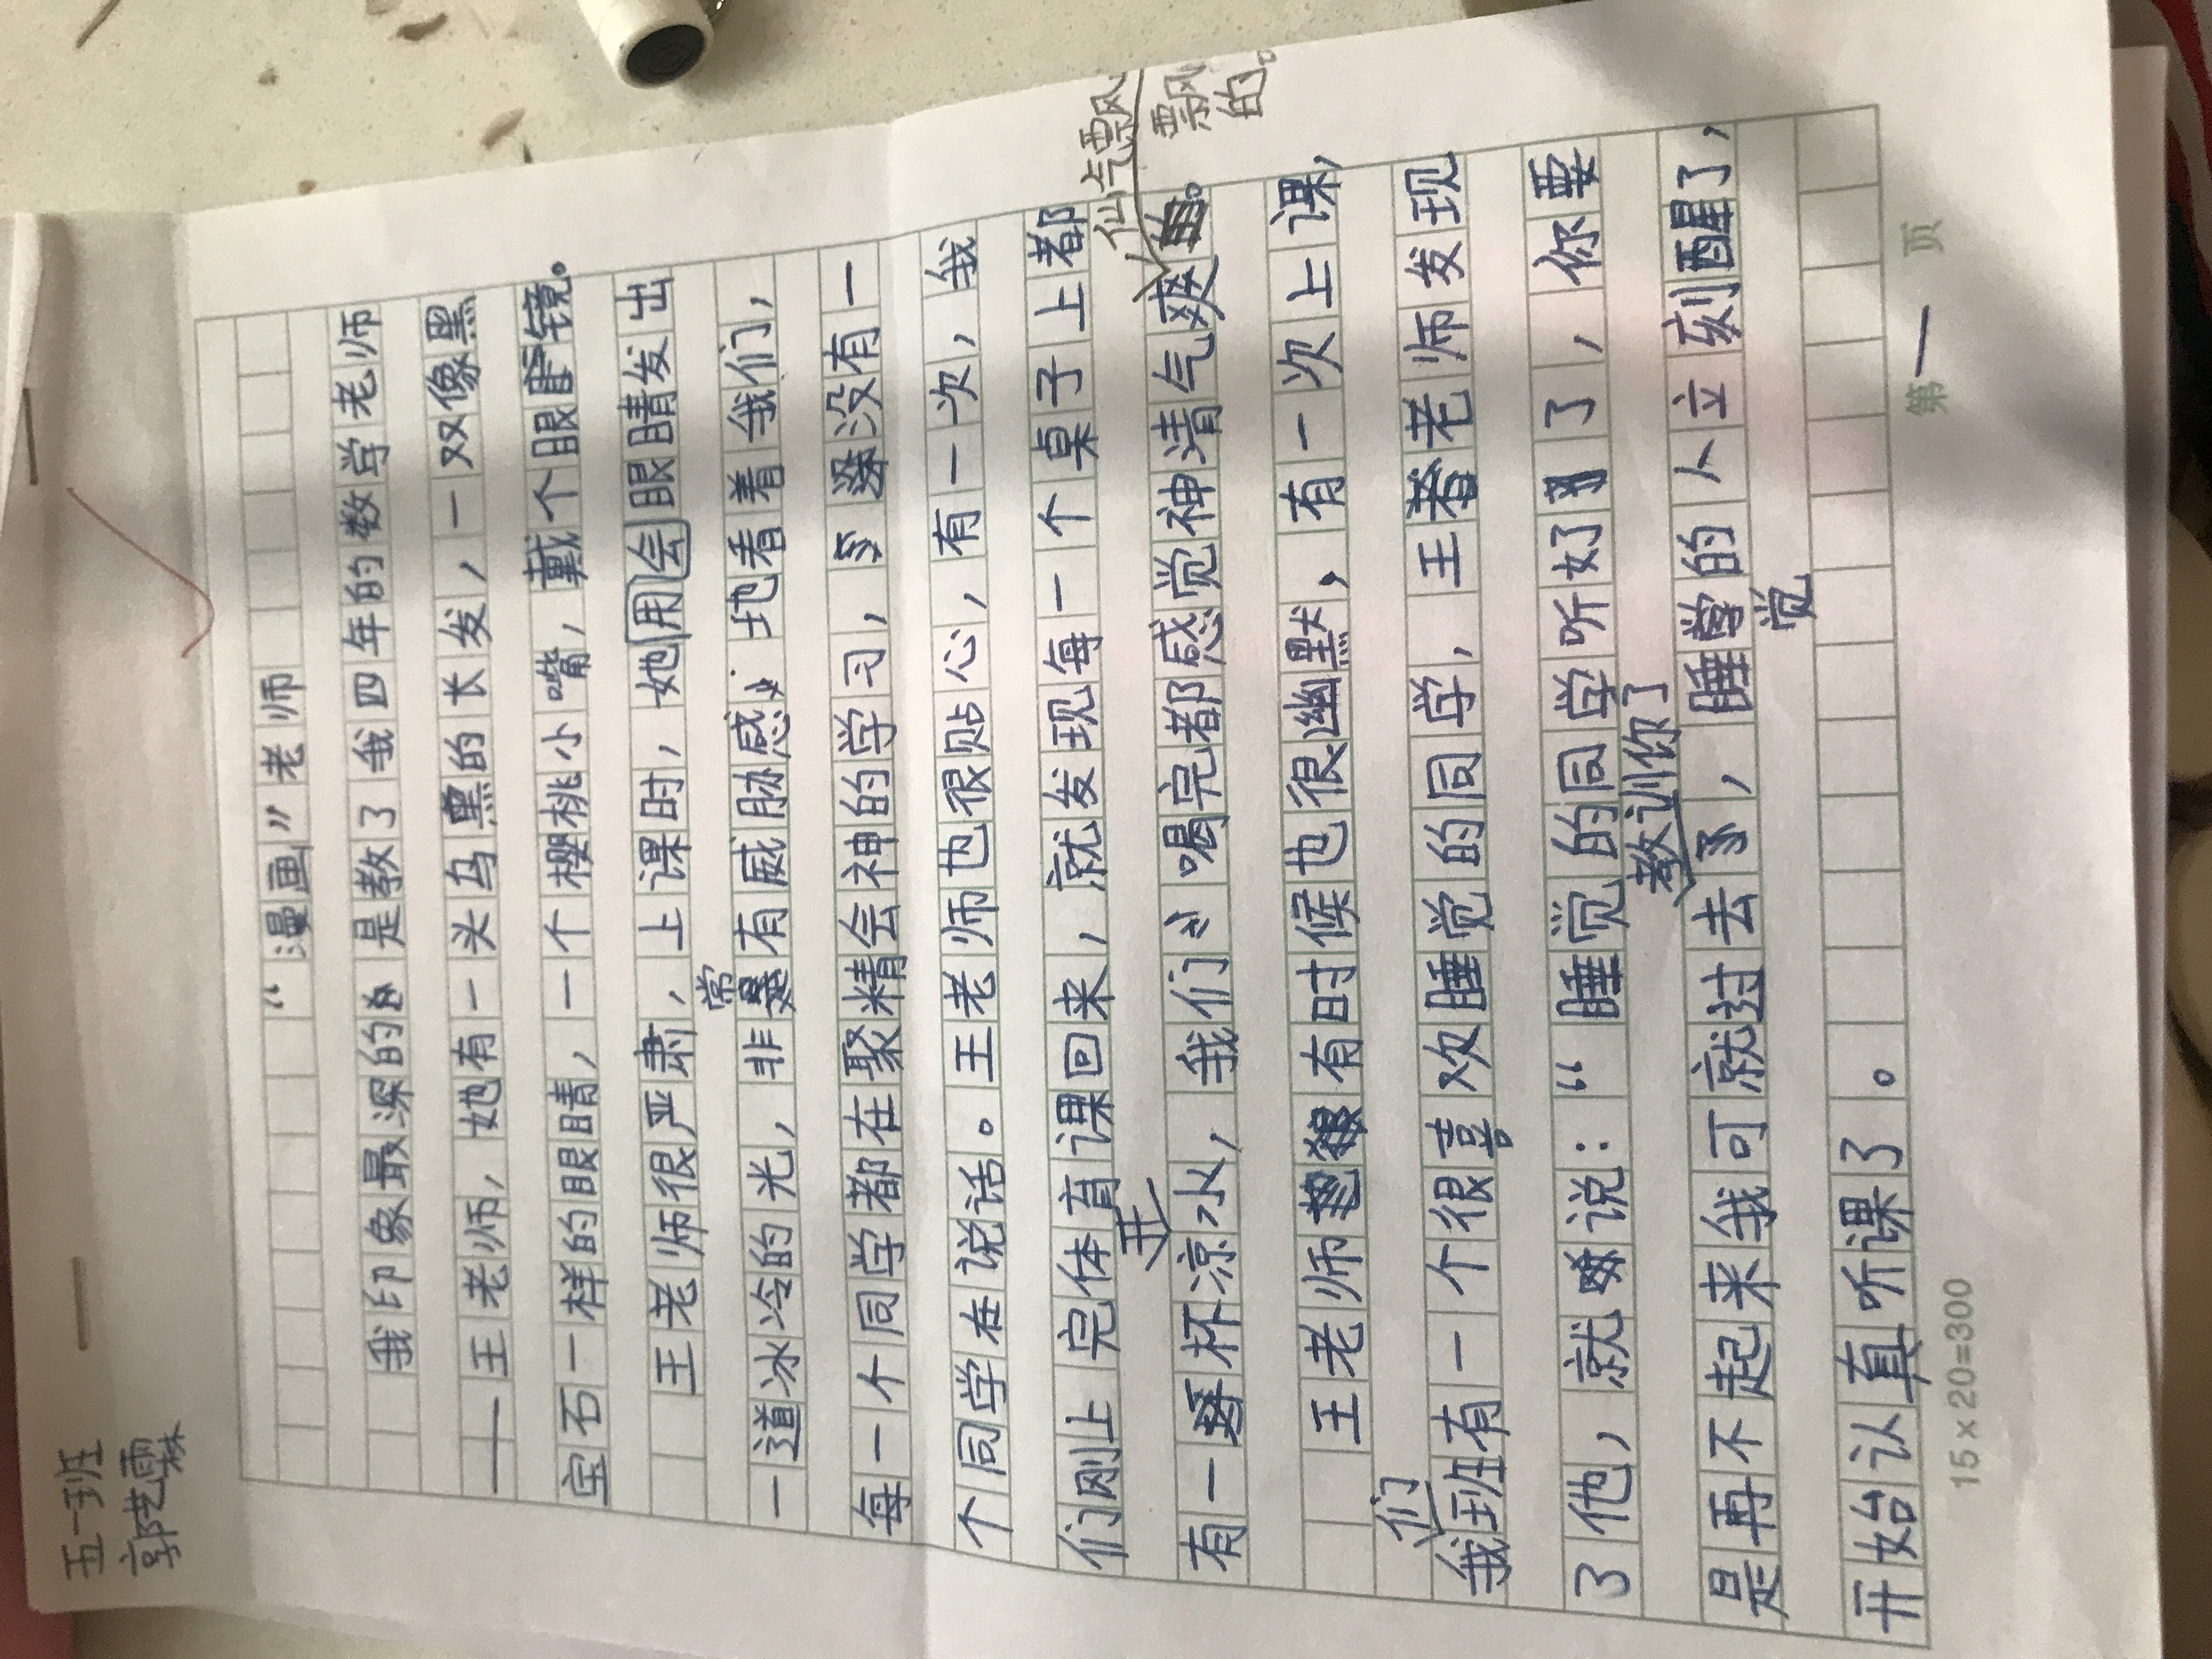 五一班
郭艺霖
“漫画”老师
我印象最深的是教了我四年的数学老师
——王老师,她有一头乌黑的长发,一双像黑
宝石一样的眼睛,一个樱桃小嘴,戴个眼镜。
王老师很严肃,上课时,她用会眼睛发出
一道冰冷的光,非常有威胁感地看着我们,
每一个同学都在聚精会神的学习,没有一
个同学在说话。王老师也很贴心,有一次,我
们刚上完体育课回来,就发现每一个桌子上都
有一杯凉水,我们喝完都感觉神清气爽仙气飘飘的。
王老师有时候也很幽默,有一次上课,
我们班有一个很喜欢睡觉的同学,王老师发现
了他,就说:“睡觉的同学听好了,你要
是再不起来我可就过去教训你了,睡觉的人立刻醒了,
开始认真听课了。
15×20=300
第一页